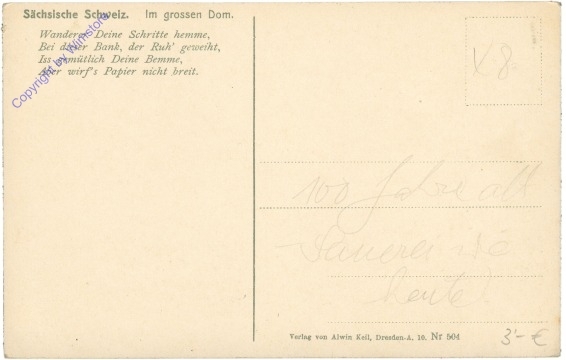 Sächsische Schweiz. Im grossen Dom.
Wanderer Deine Schritte hemme,
Bei dieser Bank, der Ruh' geweiht,
Iss gemütlich Deine Bemme,
Aber wirf's Papier nicht breit.
Copyright by Wimstore
48.-
100 Jahre alt
heute!
Verlag von Alwin Keil, Dresden-A. 10. Nr 504
3'- €